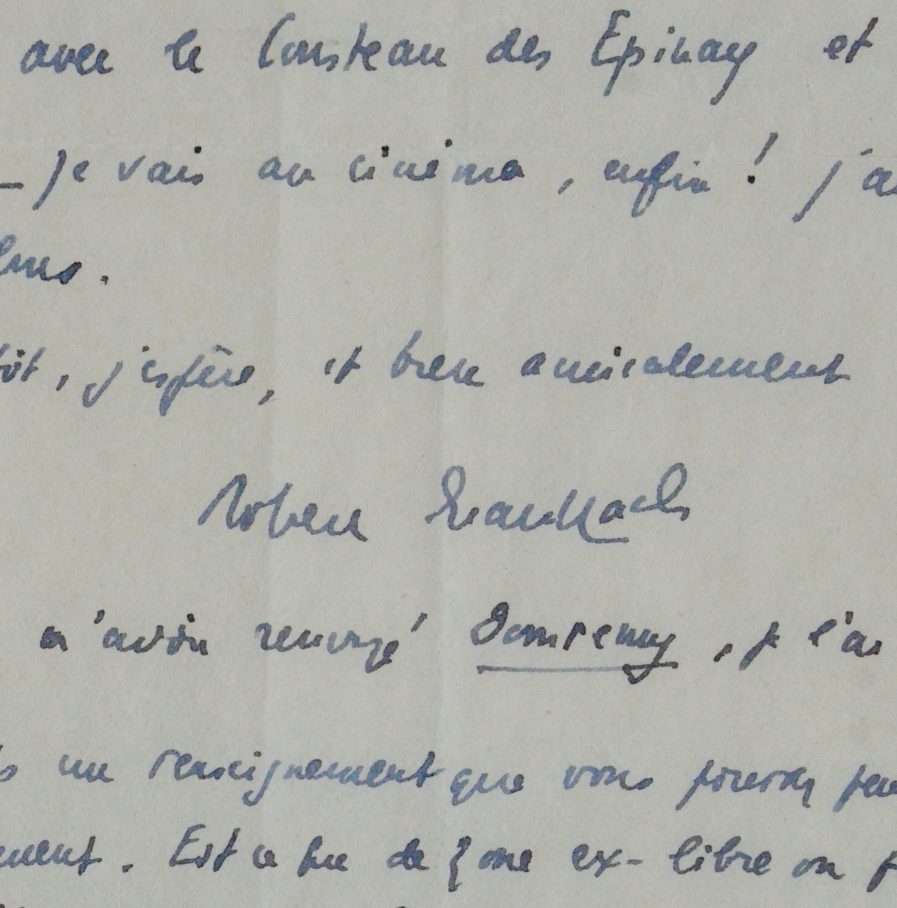 avec le Cousteau des Epinay et
— je vais au cinéma, enfin ! j'ai
lmes.
tôt, j'espère, et bien amicalement
Robert Brasillach
m'avoir renvoyé Domremy, je l'ai
un renseignement que vous pourrez peu
ment. Est ce que de zone ex-libre on p